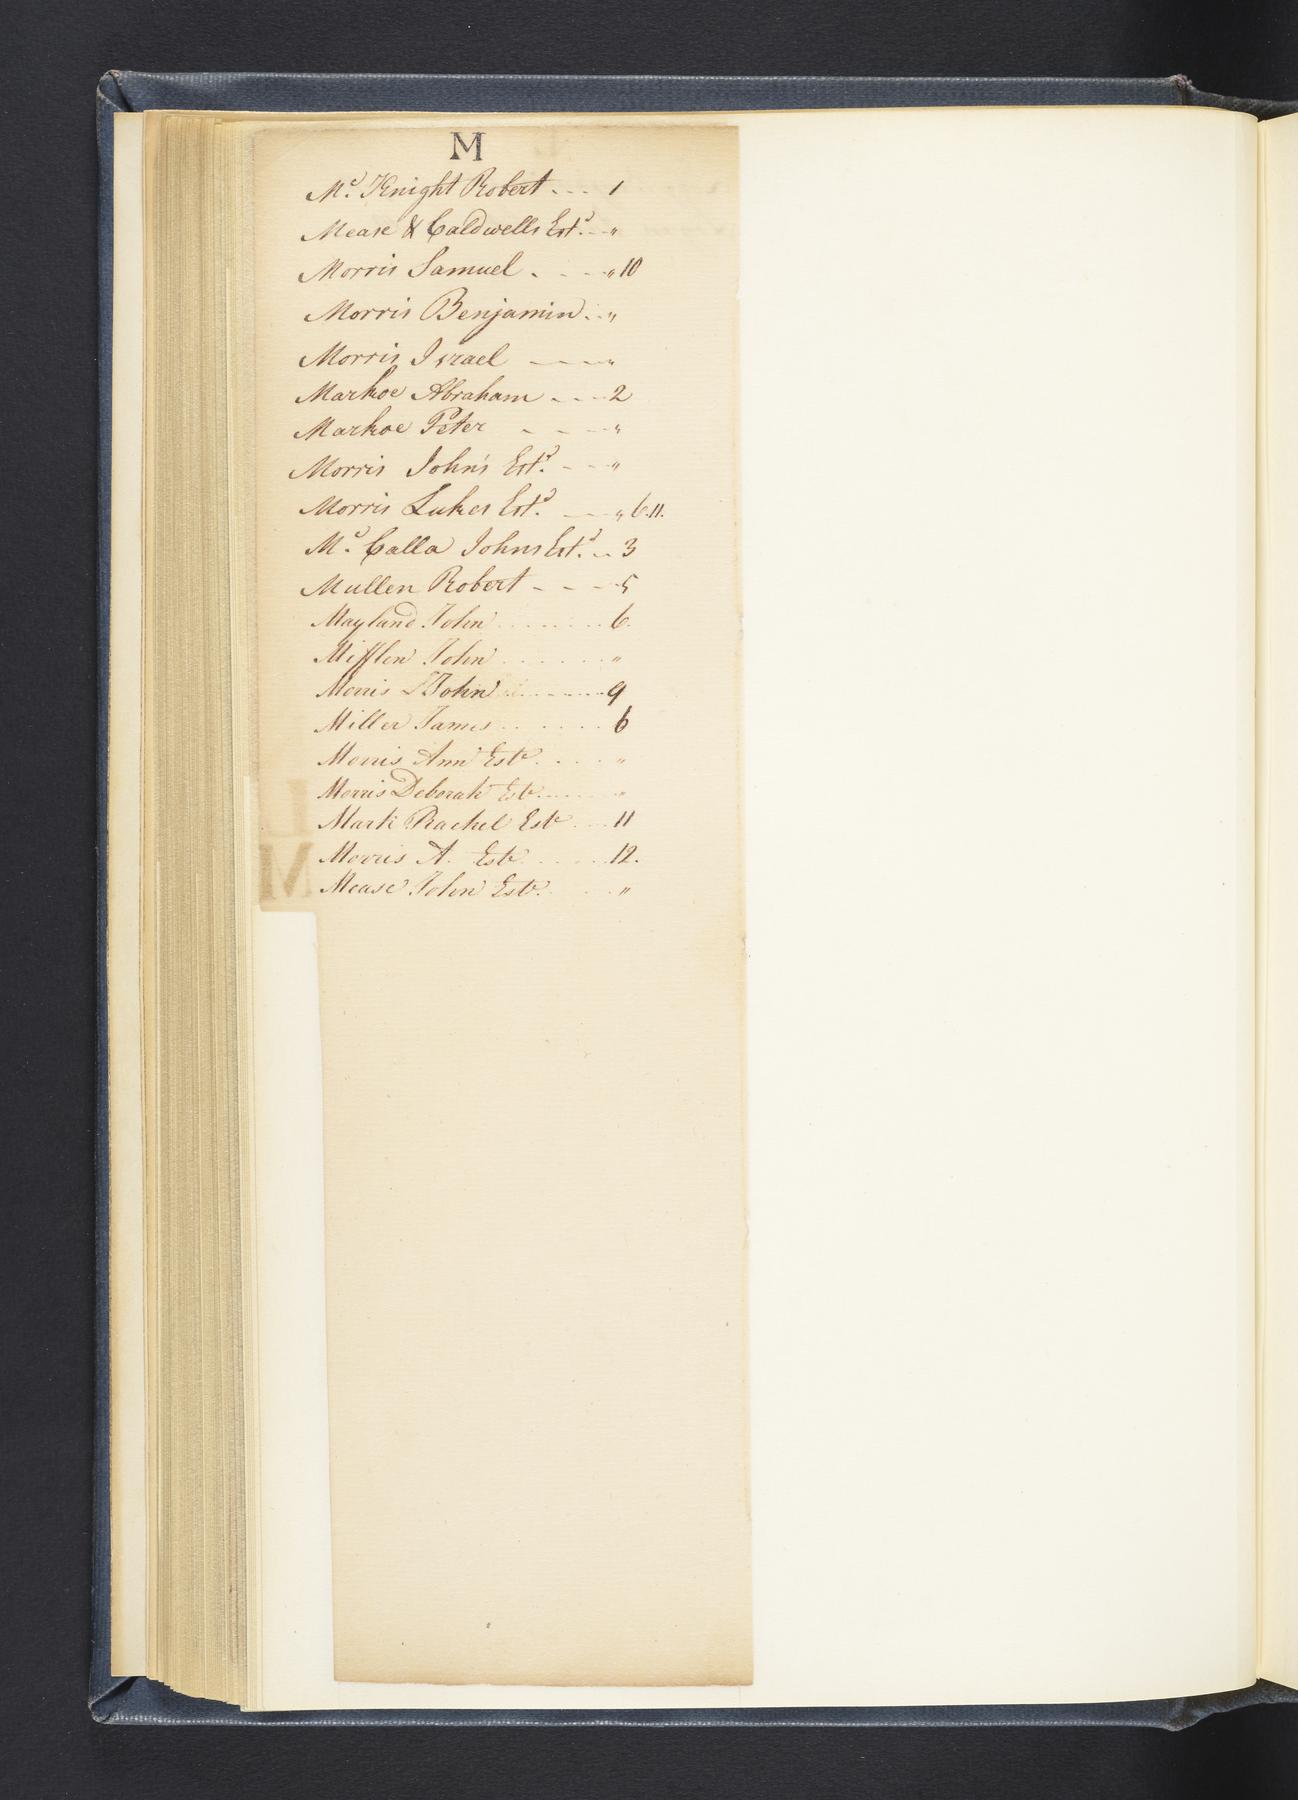 M
Mc. Knight Robert - - - 1
Mease & Caldwells Estd. - - "
Morris Samuel - - - - " 10
Morris Benjamin - - "
Morris Israel - - - "
Markoe Abraham - - - 2
Markoe Peter - - - - "
Morris John's Estd. - - - "
Morris Lukes Estd. - - - " 6.11.
Mc. Calla Johns Estd. - - 3
Mullen Robert - - - - 5
Mayland John . . . . . . . . 6.
Mifflen John . . . . . . "
Morris John . . . . . . . 9
Miller James . . . . . . . 6
Morris Ann Este . . . . "
Morris Deborah Este . . . . . "
Mark Rachel Este . . . 11
Morris A. Este . . . . . 12.
Mease John Este . . . . "
L
M